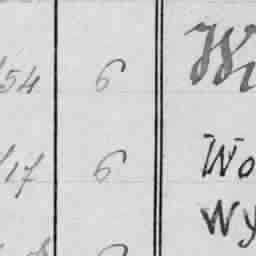 54 6 Wi
17 6 Wo
Wy